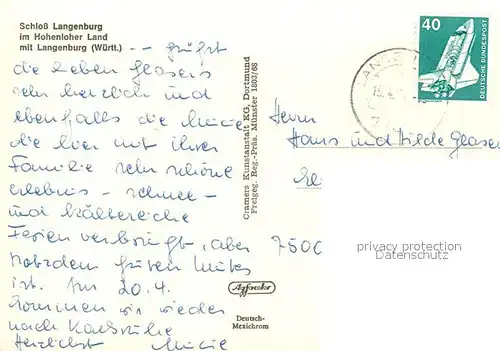 Schloß Langenburg
im Hohenloher Land
mit Langenburg (Württ.)
-- grüßt
die lieben Glasers
sehr herzlich und
ebenfalls die
die hier mit ihrer
Familie sehr schöne
erlebnis - schnee -
und kältereiche
Ferien verbringt, aber
trotzdem guten Mutes
ist. Am 20.4.
kommen wir wieder
nach Karlsruhe
Herzlichst
Cramers Kunstanstalt KG, Dortmund
Freigeg. Reg.-Präs. Münster 1803/68
Agfacolor
Deutsch-
Mexichrom
40
DEUTSCHE BUNDESPOST
Herrn
Hans und Hilde Glaser
7500
privacy protection
Datenschutz